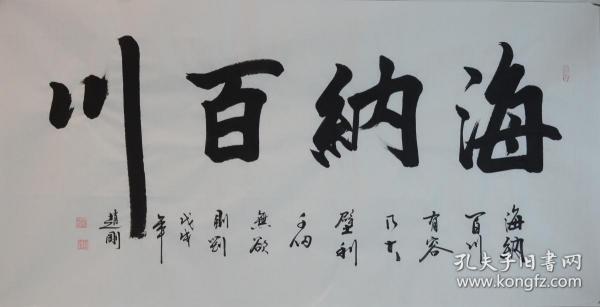 海納百川
海納
百川
有容
乃大
壁利
千仞
無欲
則剛
戊戌
年
趙剛
孔夫子旧书网
www.kongfz.com